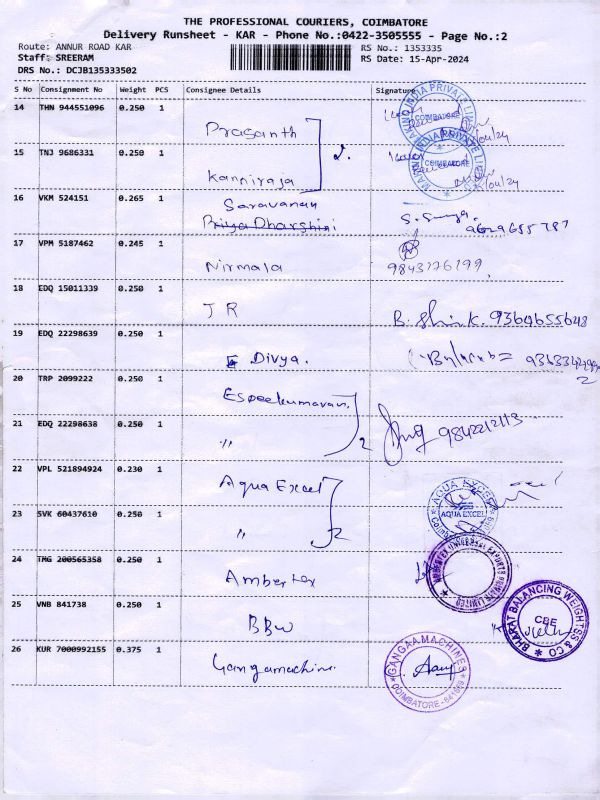 THE PROFESSIONAL COURIERS, COIMBATORE
Delivery Runsheet - KAR - Phone No.:0422-3505555 - Page No.:2
Route: ANNUR ROAD KAR
RS No.: 1353335
Staff: SREERAM
RS Date: 15-Apr-2024
DRS No.: DCJB135333502
S No Consignment No Weight PCS Consignee Details Signature
14 THN 944551096 0.250 1 Prasanth
MAKINO INDIA PRIVATE LIMITED
COIMBATORE
15 TNJ 9686331 0.250 1 Kanniraja 2.
MAKINO INDIA PRIVATE LIMITED
COIMBATORE
16 VKM 524151 0.265 1 Saravanan
Priya Dharshini
S. Surya. 9629655787
17 VPM 5187462 0.245 1 Nirmala 9843776199
18 EDQ 15011339 0.250 1 JR 9364655648
19 EDQ 22298639 0.250 1 Divya.
20 TRP 2099222 0.250 1
21 EDQ 22298638 0.250 1 " 2 9842212113
22 VPL 521894924 0.230 1 Aqua Excel
AQUA EXCEL
Coimbatore
AQUA EXCEL
23 SVK 60437610 0.250 1 " 2
24 TMG 200565358 0.250 1 Ambertex
UNIVERSAL EXPORTS PRIVATE LIMITED
25 VNB 841738 0.250 1 BBW
BHARAT BALANCING WEIGHTSS & CO
CBE
26 KUR 7000992155 0.375 1 Gangamachine
GANGAA MACHINES
COIMBATORE